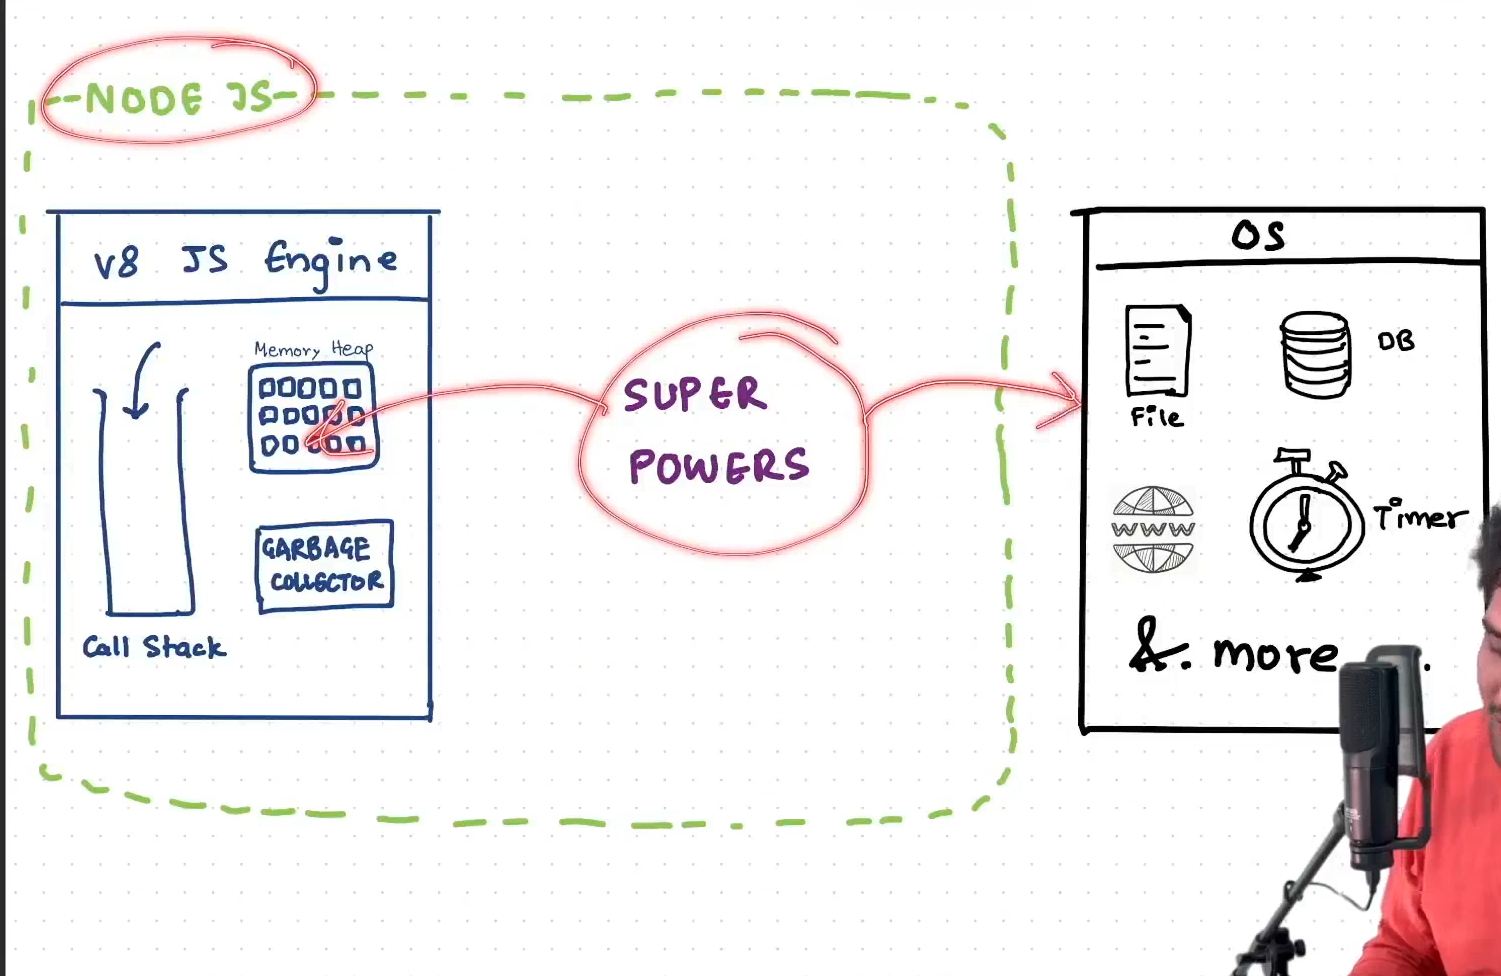 NODE JS
V8 JS Engine
Memory Heap
GARBAGE
COLLECTOR
Call Stack
SUPER
POWERS
OS
File
DB
WWW
Timer
&. more